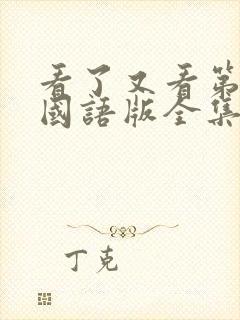 看了又看第
國語版全集
丁克